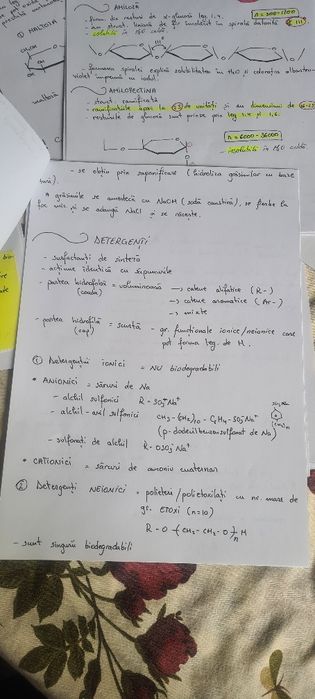 ① MALTOZA
AMILOZA
- form. din resturi de α-glucoză leg. 1,4.
n = 300-1200
- are struct. liniară de fir învolburat în spirală datorită
- solubilă în H₂O caldă
- formarea spiralei explică solubilitatea în H₂O și colorația albastru-
violet împreună cu iodul.
AMILOPECTINA
- struct. ramificată
- ramificațiile apar la de unități și au dimensiuni de
- resturile de glucoză sunt prinse prin leg. 1,4 și 1,6.
n = 6000-36000
- insolubilă în H₂O caldă
- se obțin prin saponificare (hidroliza grăsimilor cu baze
tari).
* grăsimile se amestecă cu NaOH (sodă caustică), se fierbe la
foc mic și se adaugă NaCl și se răcește.
DETERGENȚI
- surfactanți de sinteză
- acțiune identică cu săpunurile
- partea hidrofobă = voluminoasă → catene alifatice (R-)
(coada)
→ catene aromatice (Ar-)
→ mixte
- partea hidrofilă = scurtă - gr. funcționale ionice/neionice care
(cap)
pot forma leg. de H.
① Detergenții ionici = NU biodegradabili
* ANIONICI = săruri de Na
- alchil sulfonici R-SO₃⁻Na⁺
- alchil-aril sulfonici CH₃-(CH₂)₁₀-C₆H₄-SO₃⁻Na⁺
(p-dodecilbenzensulfonat de Na)
- sulfați de alchil R-OSO₃⁻Na⁺
* CATIONICI = săruri de amoniu cuaternar
② Detergenți NEIONICI = polieteri/polietoxilați cu nr. mare de
gr. ETOXI (n=10)
R-O-(CH₂-CH₂-O)ₙH
- sunt singurii biodegradabili